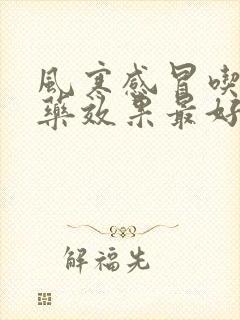 風寒感冒喫
藥效果最好
解福先